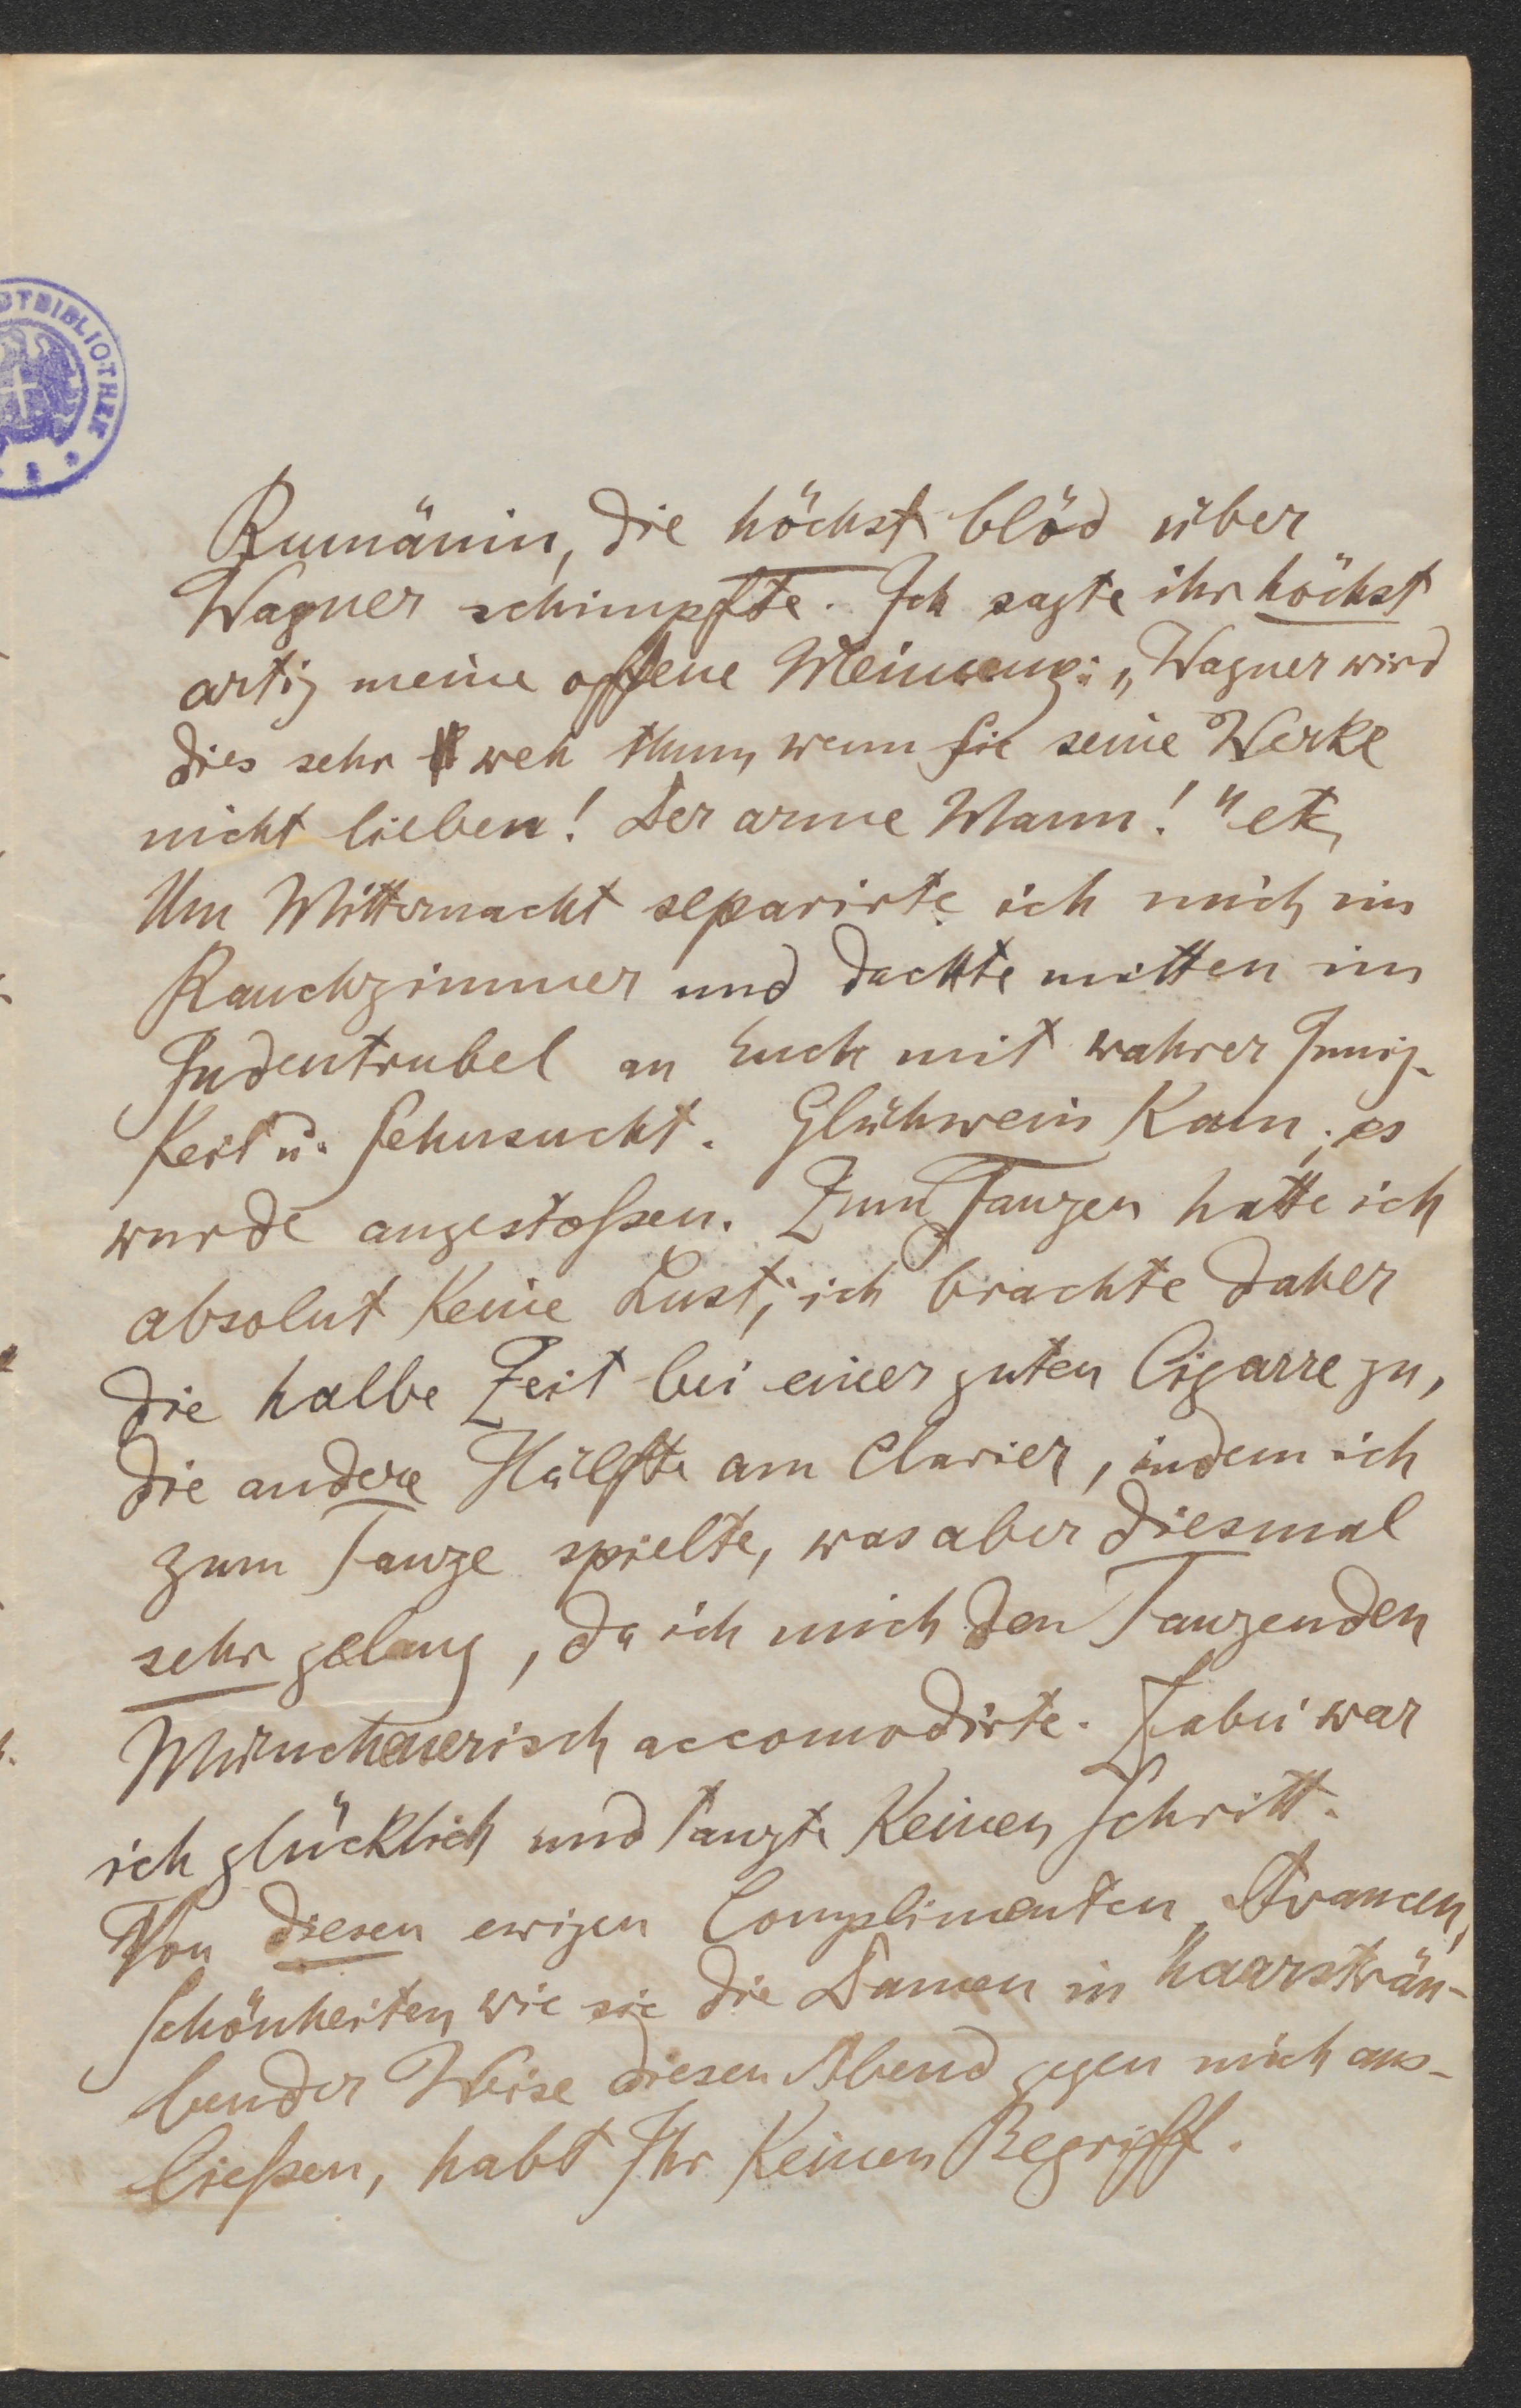 DTBIBLIOTHEK
Rumänin, die höchst blöd über
Wagner schimpfte. Ich sagte ihr höchst
artig meine offene Meinung: „Wagner wird
dies sehr weh thun, wenn Sie seine Werke
nicht lieben! Der arme Mann!" etc,
Um Mitternacht separirte ich mich im
Rauchzimmer und dachte mitten im
Judentrubel an Euch mit wahrer Innig-
keit u. Sehnsucht. Glühwein kam; es
wurde angestoßen. Zum Tanzen hatte ich
absolut keine Lust; ich brachte daher
die halbe Zeit bei einer guten Cigarre zu,
die andere Hälfte am Clavier, indem ich
zum Tanze spielte, was aber diesmal
sehr gelang, da ich mich den Tanzenden
Münchenerisch accomodirte. Dabei war
ich glücklich und tanzte keinen Schritt.
Von diesen ewigen Complimenten, Avancen,
Schönheiten, wie sie die Damen in haarsträu-
bender Weise diesen Abend gegen mich aus-
ließen, habt Ihr keinen Begriff.